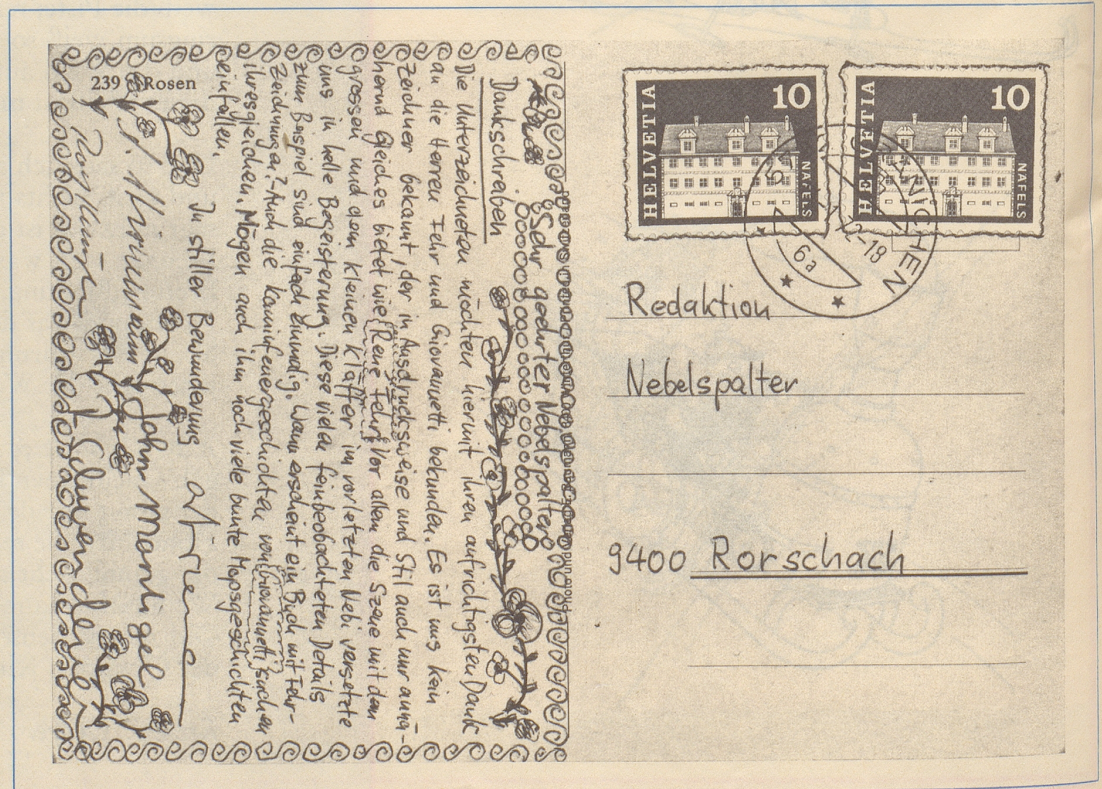 239 Rosen
Sehr geehrter Nebelspalter
Dankschreiben
Die Unterzeichneten möchten hiermit ihren aufrichtigsten Dank
an die Herren Fehr und Giovannetti bekunden. Es ist uns kein
Zeichner bekannt, der in Ausdrucksweise und Stil auch nur annä-
hernd Gleiches bietet wie René Fehr. Vor allem die Szene mit dem
grossen und dem kleinen Kläffer im vorletzten Nebi versetzte
uns in helle Begeisterung. Diese vielen feinbeobachteten Details
zum Beispiel sind einfach einmalig. Wann erscheint ein Buch mit Fehr-
Zeichnungen? – Auch die Kaminfeuergeschichten von Giovannetti suchen
ihresgleichen. Mögen auch ihm noch viele bunte Mopsgeschichten
einfallen.
In stiller Bewunderung
John Manhigel
HELVETIA 10 NÄFELS
HELVETIA 10 NÄFELS
6a
-18
Redaktion
Nebelspalter
9400 Rorschach